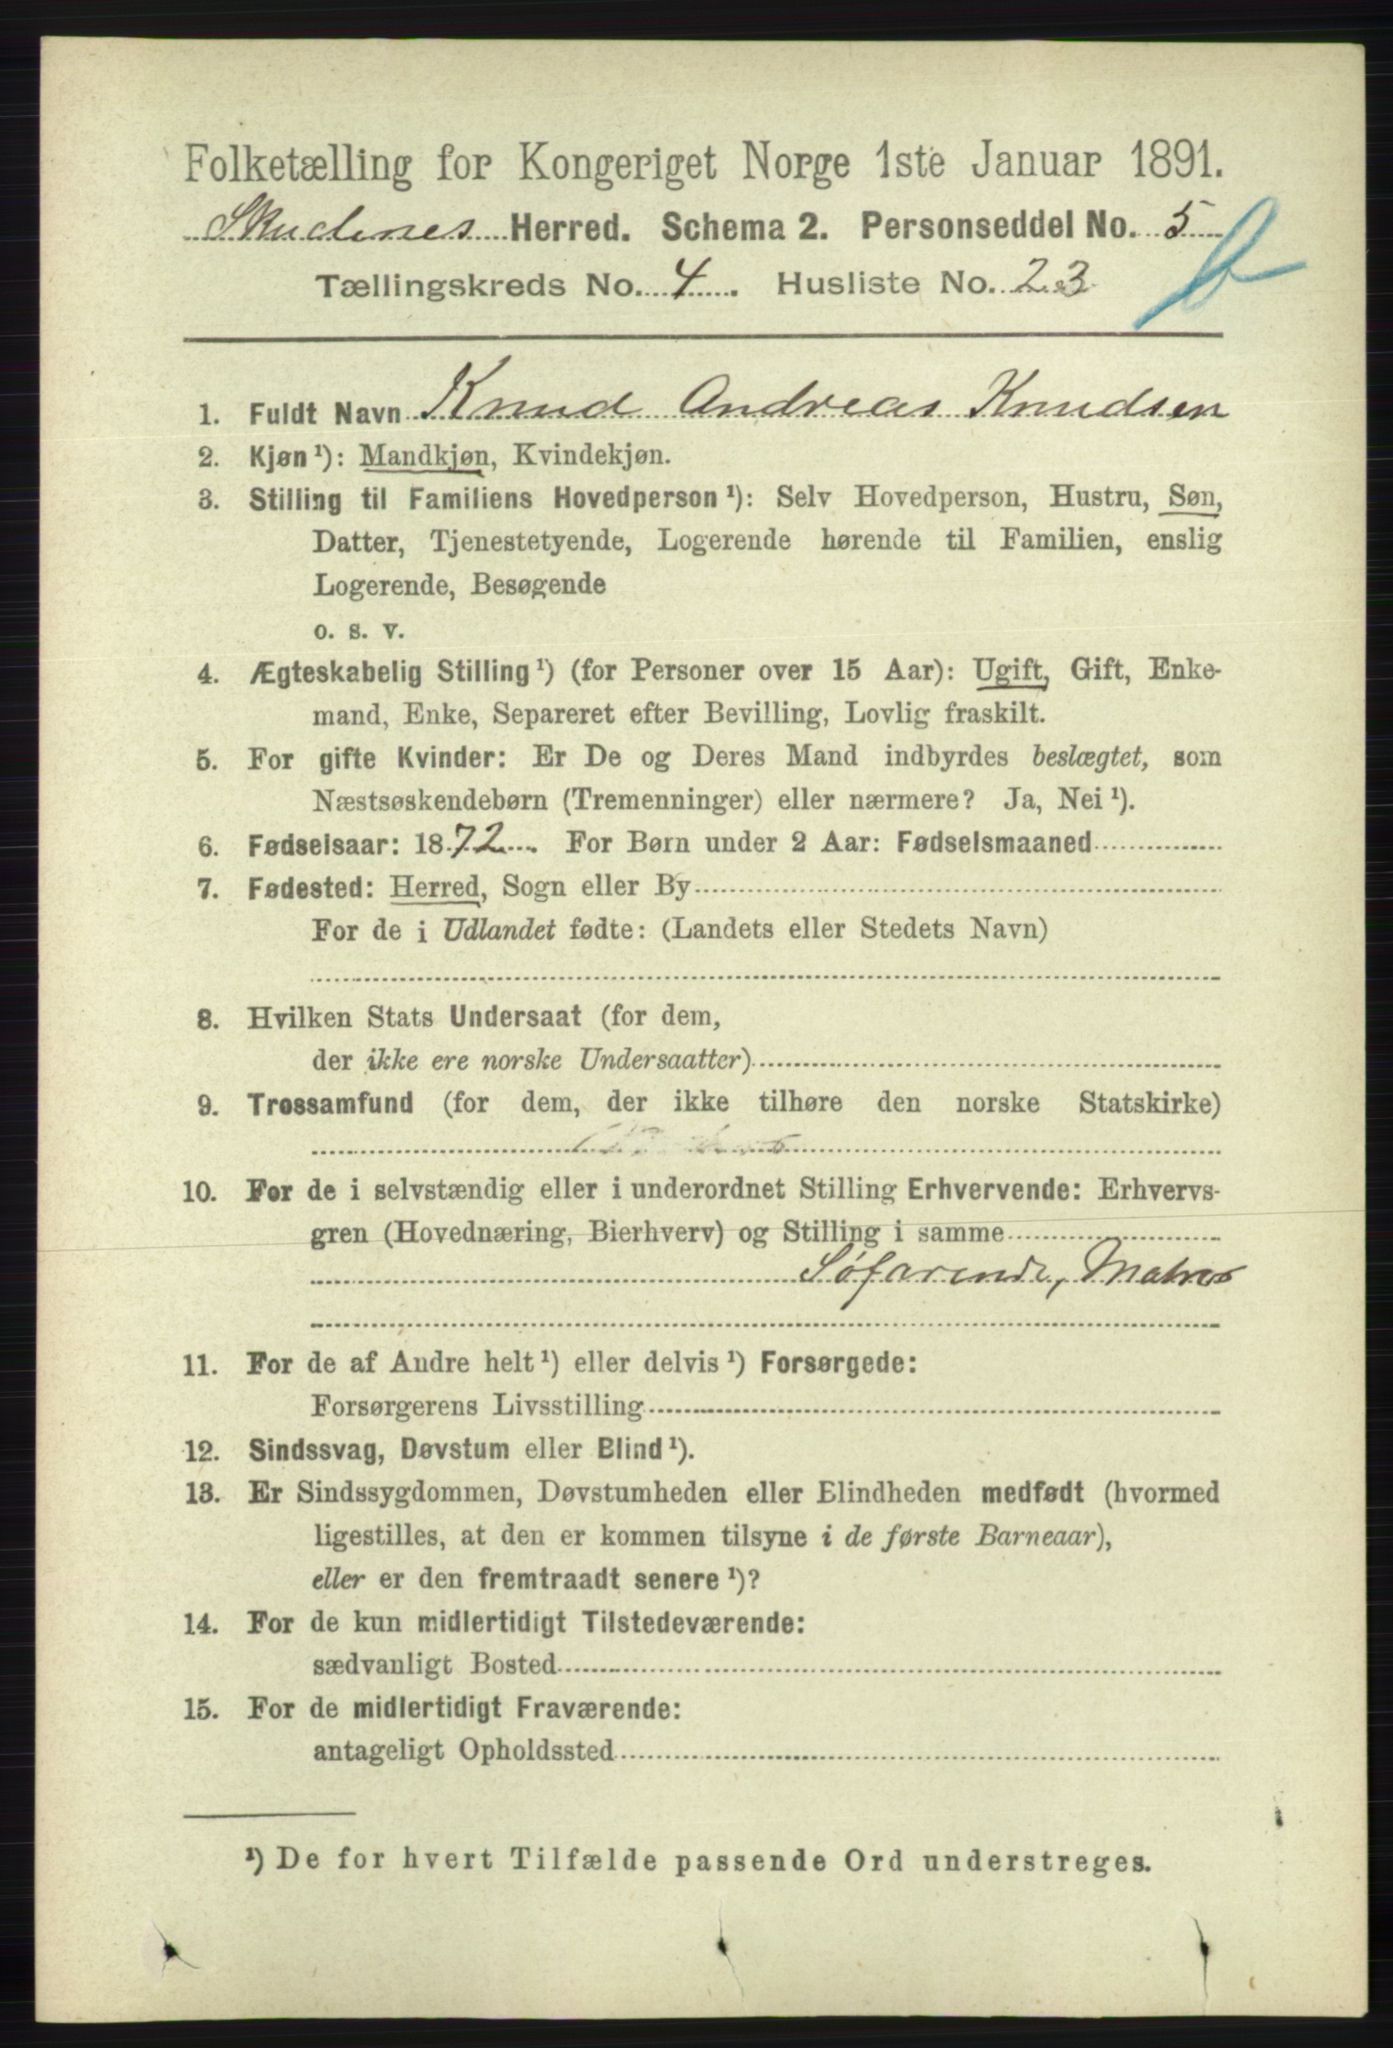 Folketælling for Kongeriget Norge 1ste Januar 1891.
Skudenes Herred. Schema 2. Personseddel No. 5
Tællingskreds No. 4. Husliste No. 23
1. Fuldt Navn Knud Andreas Knudsen
2. Kjøn ¹): Mandkjøn, Kvindekjøn.
3. Stilling til Familiens Hovedperson ¹): Selv Hovedperson, Hustru, Søn,
Datter, Tjenestetyende, Logerende hørende til Familien, enslig
Logerende, Besøgende
o. s. v.
4. Ægteskabelig Stilling ¹) (for Personer over 15 Aar): Ugift, Gift, Enke-
mand, Enke, Separeret efter Bevilling, Lovlig fraskilt.
5. For gifte Kvinder: Er De og Deres Mand indbyrdes beslægtet, som
Næstsøskendebørn (Tremenninger) eller nærmere? Ja, Nei ¹).
6. Fødselsaar: 1872. For Børn under 2 Aar: Fødselsmaaned
7. Fødested: Herred, Sogn eller By
For de i Udlandet fødte: (Landets eller Stedets Navn)
8. Hvilken Stats Undersaat (for dem,
der ikke ere norske Undersaatter)
9. Trossamfund (for dem, der ikke tilhøre den norske Statskirke)
10. For de i selvstændig eller i underordnet Stilling Erhvervende: Erhvervs-
gren (Hovednæring, Bierhverv) og Stilling i samme
Søfarende, Matros
11. For de af Andre helt ¹) eller delvis ¹) Forsørgede:
Forsørgerens Livsstilling
12. Sindssvag, Døvstum eller Blind ¹).
13. Er Sindssygdommen, Døvstumheden eller Blindheden medfødt (hvormed
ligestilles, at den er kommen tilsyne i de første Barneaar),
eller er den fremtraadt senere ¹)?
14. For de kun midlertidigt Tilstedeværende:
sædvanligt Bosted
15. For de midlertidigt Fraværende:
antageligt Opholdssted
¹) De for hvert Tilfælde passende Ord understreges.